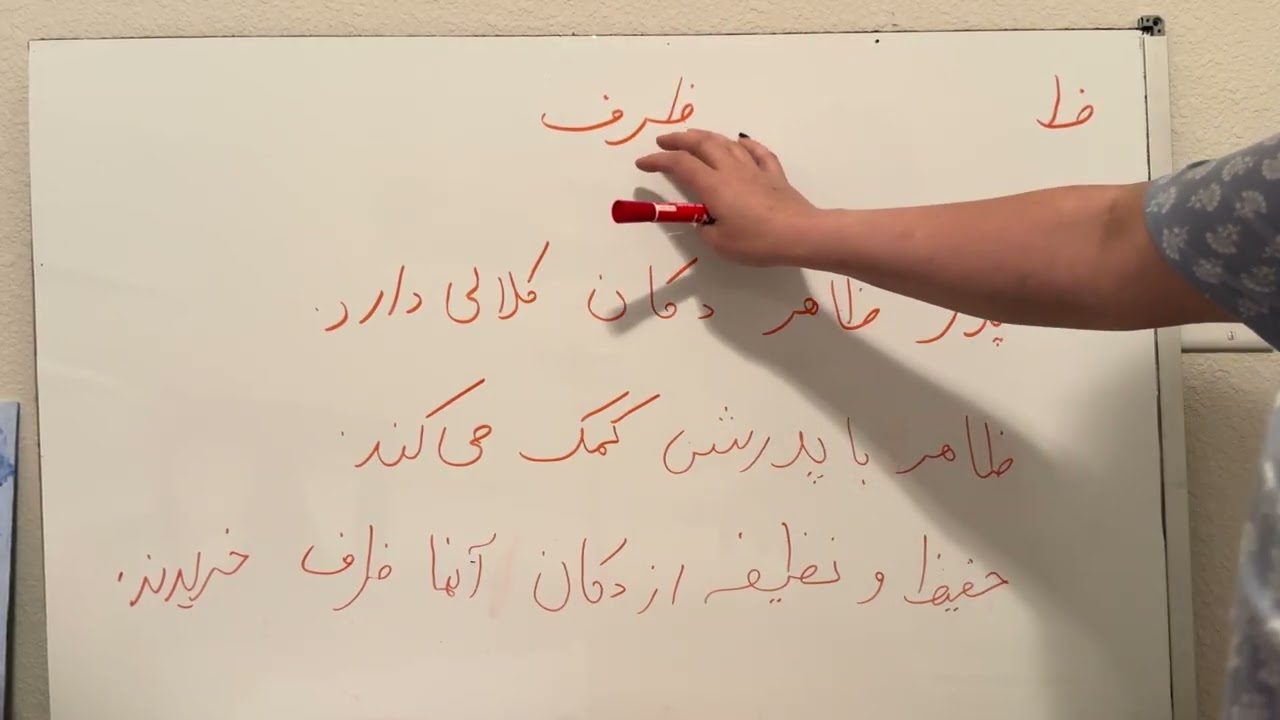 ظ ظرف
پدر ظاهر دکان کلالی دارد.
ظاهر با پدرش کمک می‌کند.
حفیظ و نظیفه از دکان آنها ظرف خریدند.